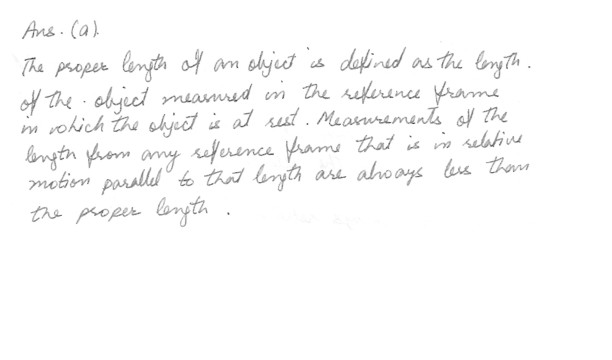 Ans. (a).
The proper length of an object is defined as the length.
of the . object measured in the reference frame
in which the object is at rest. Measurements of the
length from any reference frame that is in relative
motion parallel to that length are always less than
the proper length .